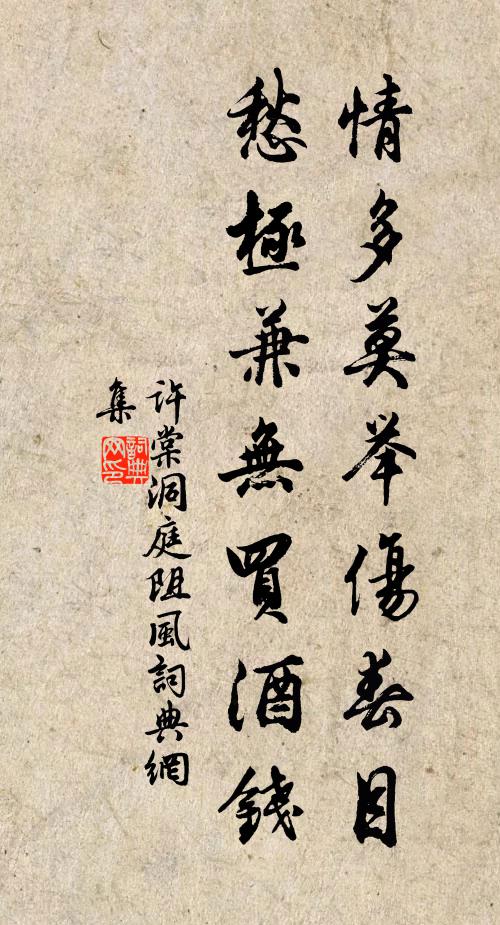 情多莫举傷春目
愁極兼無買酒錢
許棠洞庭阻風詞典網
集
詞典
网印